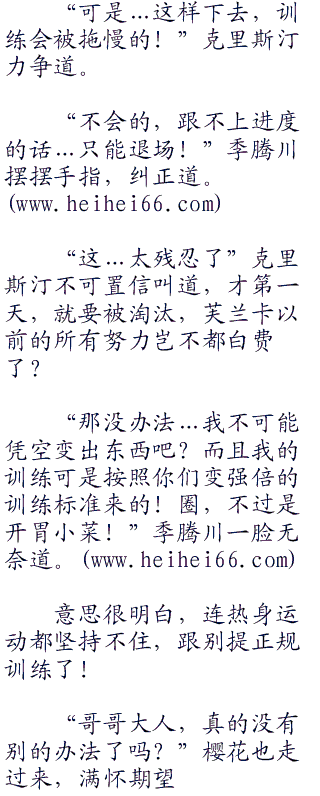 “可是…这样下去，训
练会被拖慢的！”克里斯汀
力争道。
“不会的，跟不上进度
的话…只能退场！”季腾川
摆摆手指，纠正道。
(www.heihei66.com)
“这…太残忍了”克里
斯汀不可置信叫道，才第一
天，就要被淘汰，芙兰卡以
前的所有努力岂不都白费
了？
“那没办法…我不可能
凭空变出东西吧？而且我的
训练可是按照你们变强倍的
训练标准来的！圈，不过是
开胃小菜！”季腾川一脸无
奈道。(www.heihei66.com)
意思很明白，连热身运
动都坚持不住，跟别提正规
训练了！
“哥哥大人，真的没有
别的办法了吗？”樱花也走
过来，满怀期望